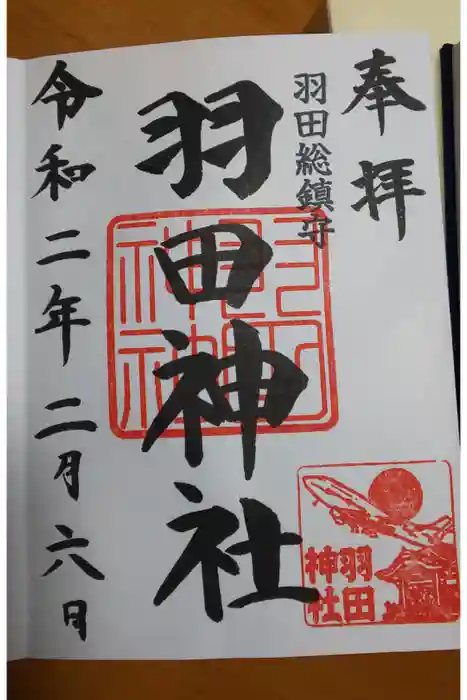 奉拝
羽田総鎮守
羽田神社
令和二年二月六日
羽田
神社
羽田
神社